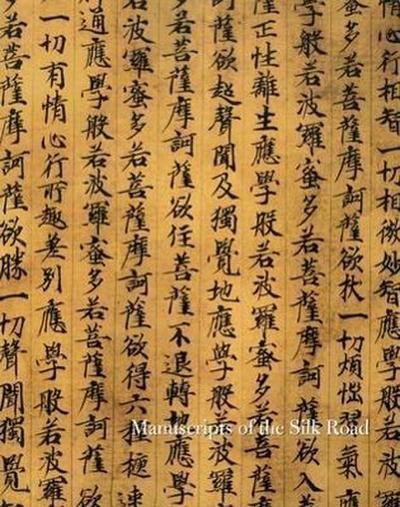 情心行相智一切相微妙智應學般若
蜜多若菩薩摩訶薩欲拔一切煩惱習氣應
學般若波羅蜜多若菩薩摩訶薩欲入菩
薩正性離生應學般若波羅蜜多若菩薩
訶薩欲超聲聞及獨覺地應學般若波羅
多若菩薩摩訶薩欲住菩薩不退轉地應學
般若波羅蜜多若菩薩摩訶薩欲得六種極速
通應學般若波羅蜜多若菩薩摩訶薩欲
一切有情心行所趣差別應學般若波羅
多若菩薩摩訶薩欲勝一切聲聞獨覺
Manuscripts of the Silk Road